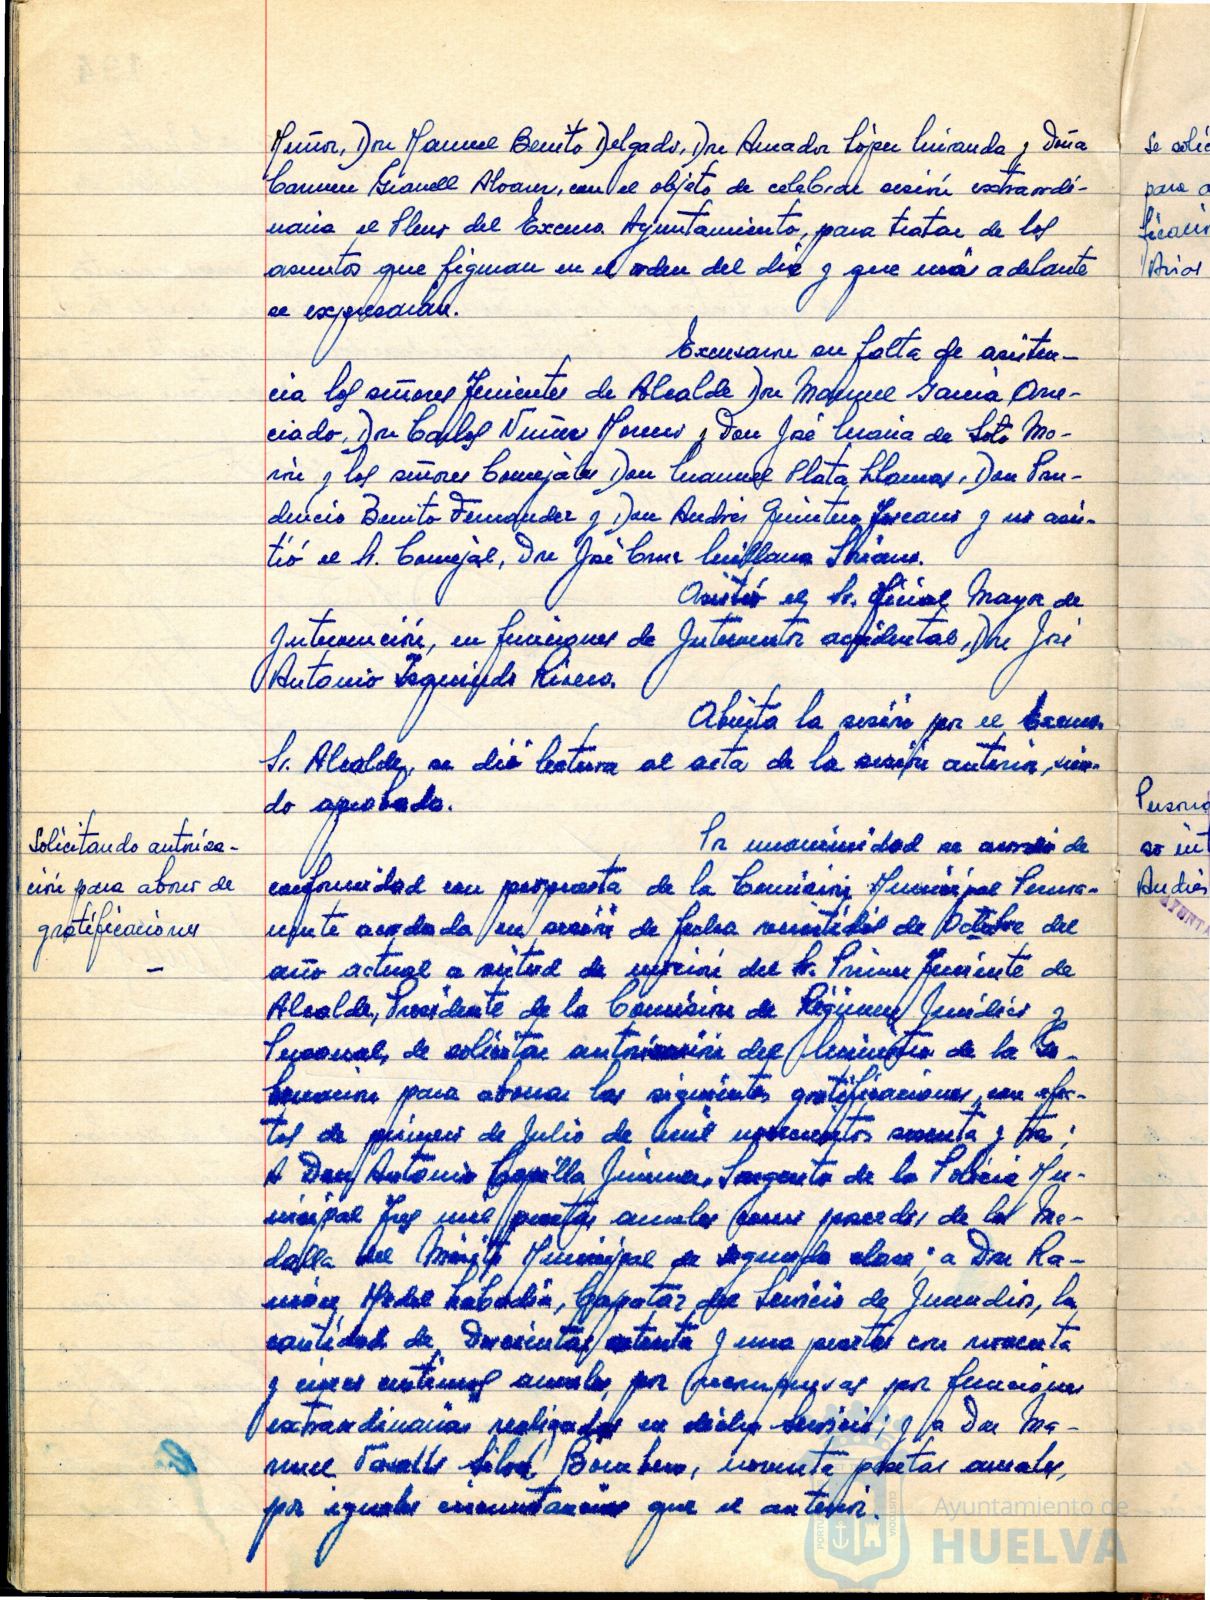 Muñoz, Don Manuel Benito Delgado, Don Amador López Miranda y Doña
Carmen Granell Alvarez, con el objeto de celebrar sesión extraordi-
naria el Pleno del Excmo Ayuntamiento, para tratar de los
asuntos que figuran en el orden del día y que más adelante
se expresarán.
Excusaron su falta de asisten-
cia los señores Tenientes de Alcalde Don Manuel García One-
ciado, Don Carlos Núñez Moreno y Don José María de Soto Mo-
rón y los señores Concejales Don Manuel Plata Llamas, Don Pru-
dencio Benito Fernandez y Don Andrés Quintero Toscano y no asis-
tió el Sr. Concejal, Don José Cruz Soriano.
Asistió el Sr. Oficial Mayor de
Intervención, en funciones de Interventor accidental, Don José
Antonio Izquierdo Rivero.
Abierta la sesión por el Excmo.
Sr. Alcalde, se dió lectura al acta de la sesión anterior, sien-
do aprobada.
Solicitando autoriza-
ción para abono de
gratificaciones
Por unanimidad se acordó de
conformidad con propuesta de la Comisión Municipal Perma-
nente acordada en sesión de fecha veintidós de Octubre del
año actual a virtud de moción del Sr. Primer Teniente de
Alcalde, Presidente de la Comisión de Régimen Jurídico y
Personal, de solicitar autorización del Ministro de la Go-
bernación para abonar las siguientes gratificaciones, con efec-
tos de primero de Julio de mil novecientos sesenta y tres:
A Don Antonio Capilla Jiménez, Sargento de la Policía Mu-
nicipal Tres mil pesetas anuales como poseedor de la Me-
dalla del Mérito Municipal de segunda clase; a Don Ra-
món Labadía, Capataz del Servicio de Incendios, la
cantidad de Doscientas y una pesetas con noventa
y cinco céntimos anuales, por recompensas por funciones
extraordinarias realizadas en dicho Servicio; y a Don Ma-
nuel Silva, Bombero, noventa pesetas anuales,
por iguales circunstancias que el anterior.
Se solic
para a
ficacio
Arios
Person
so int
Andrés
Ayuntamiento de
HUELVA